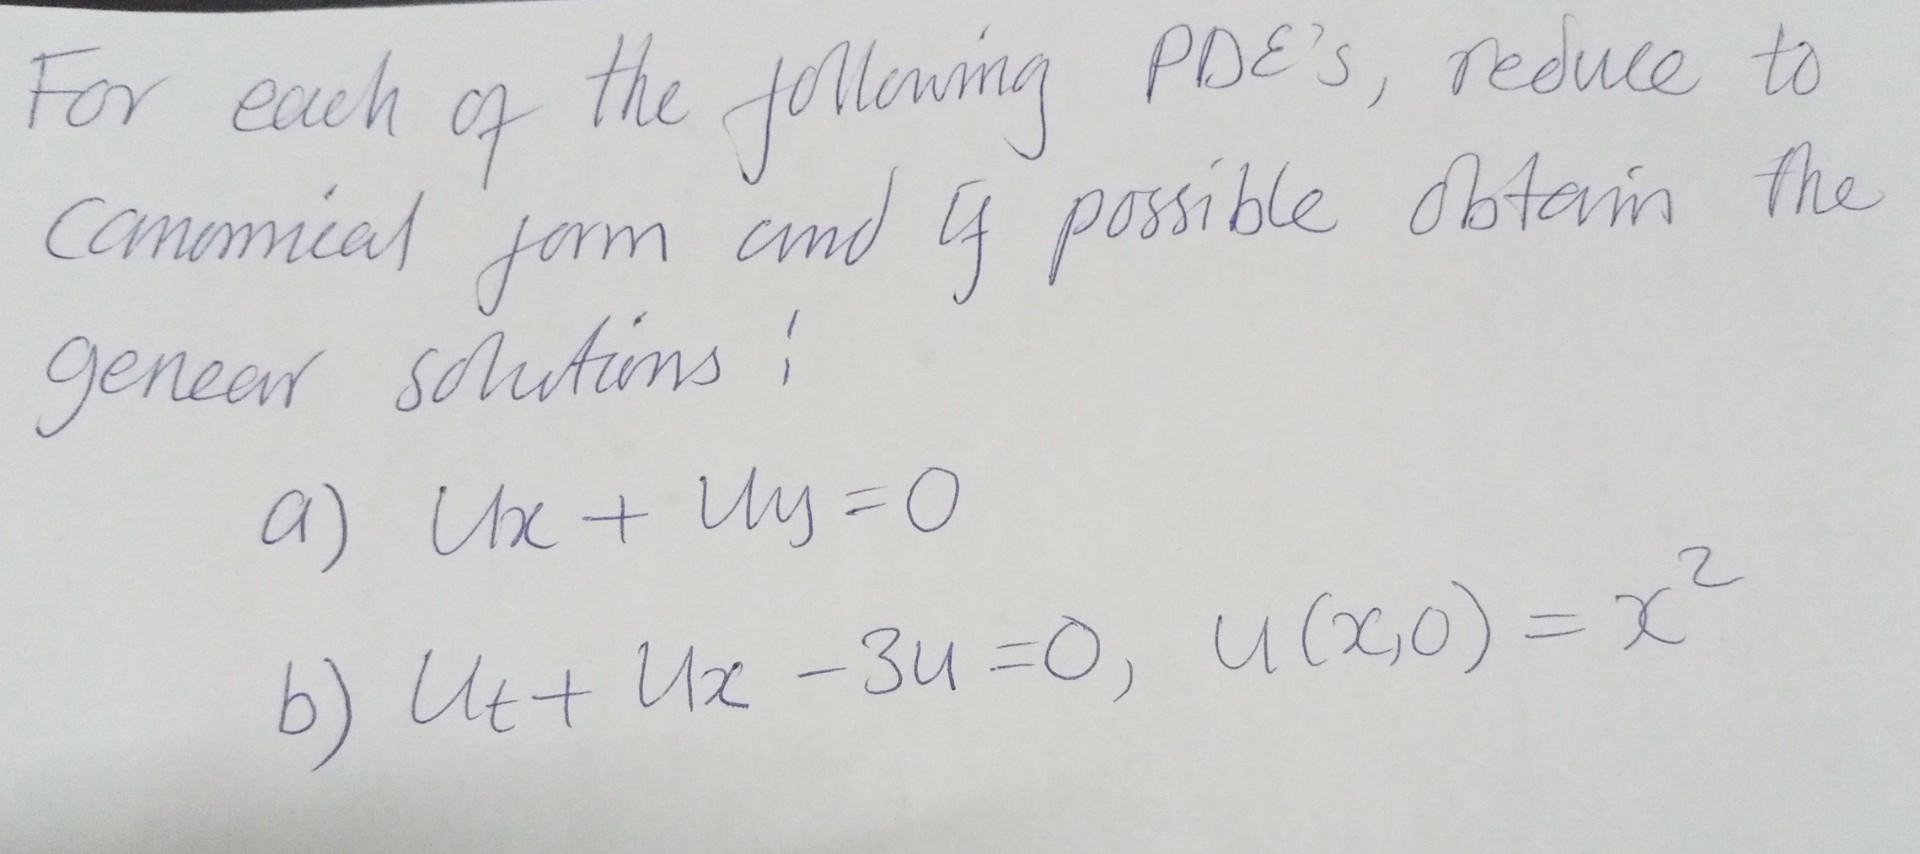 For each of the following PDE's, reduce to
canonical form and if possible obtain the
genear solutions :
a) Ux + Uy = 0
b) Ut + Ux - 3u = 0, u(x,0) = x²